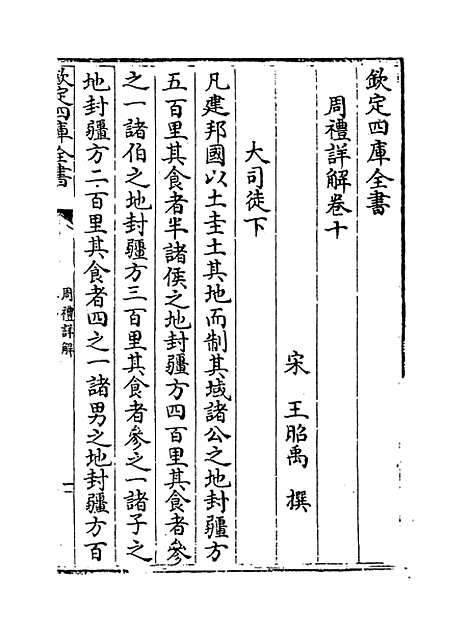 欽定四庫全書
周禮詳解卷十
宋 王昭禹 撰
大司徒下
凡建邦國以土圭土其地而制其域諸公之地封疆方
五百里其食者半諸侯之地封疆方四百里其食者參
之一諸伯之地封疆方三百里其食者參之一諸子之
地封疆方二百里其食者四之一諸男之地封疆方百
欽定四庫全書
周禮詳解